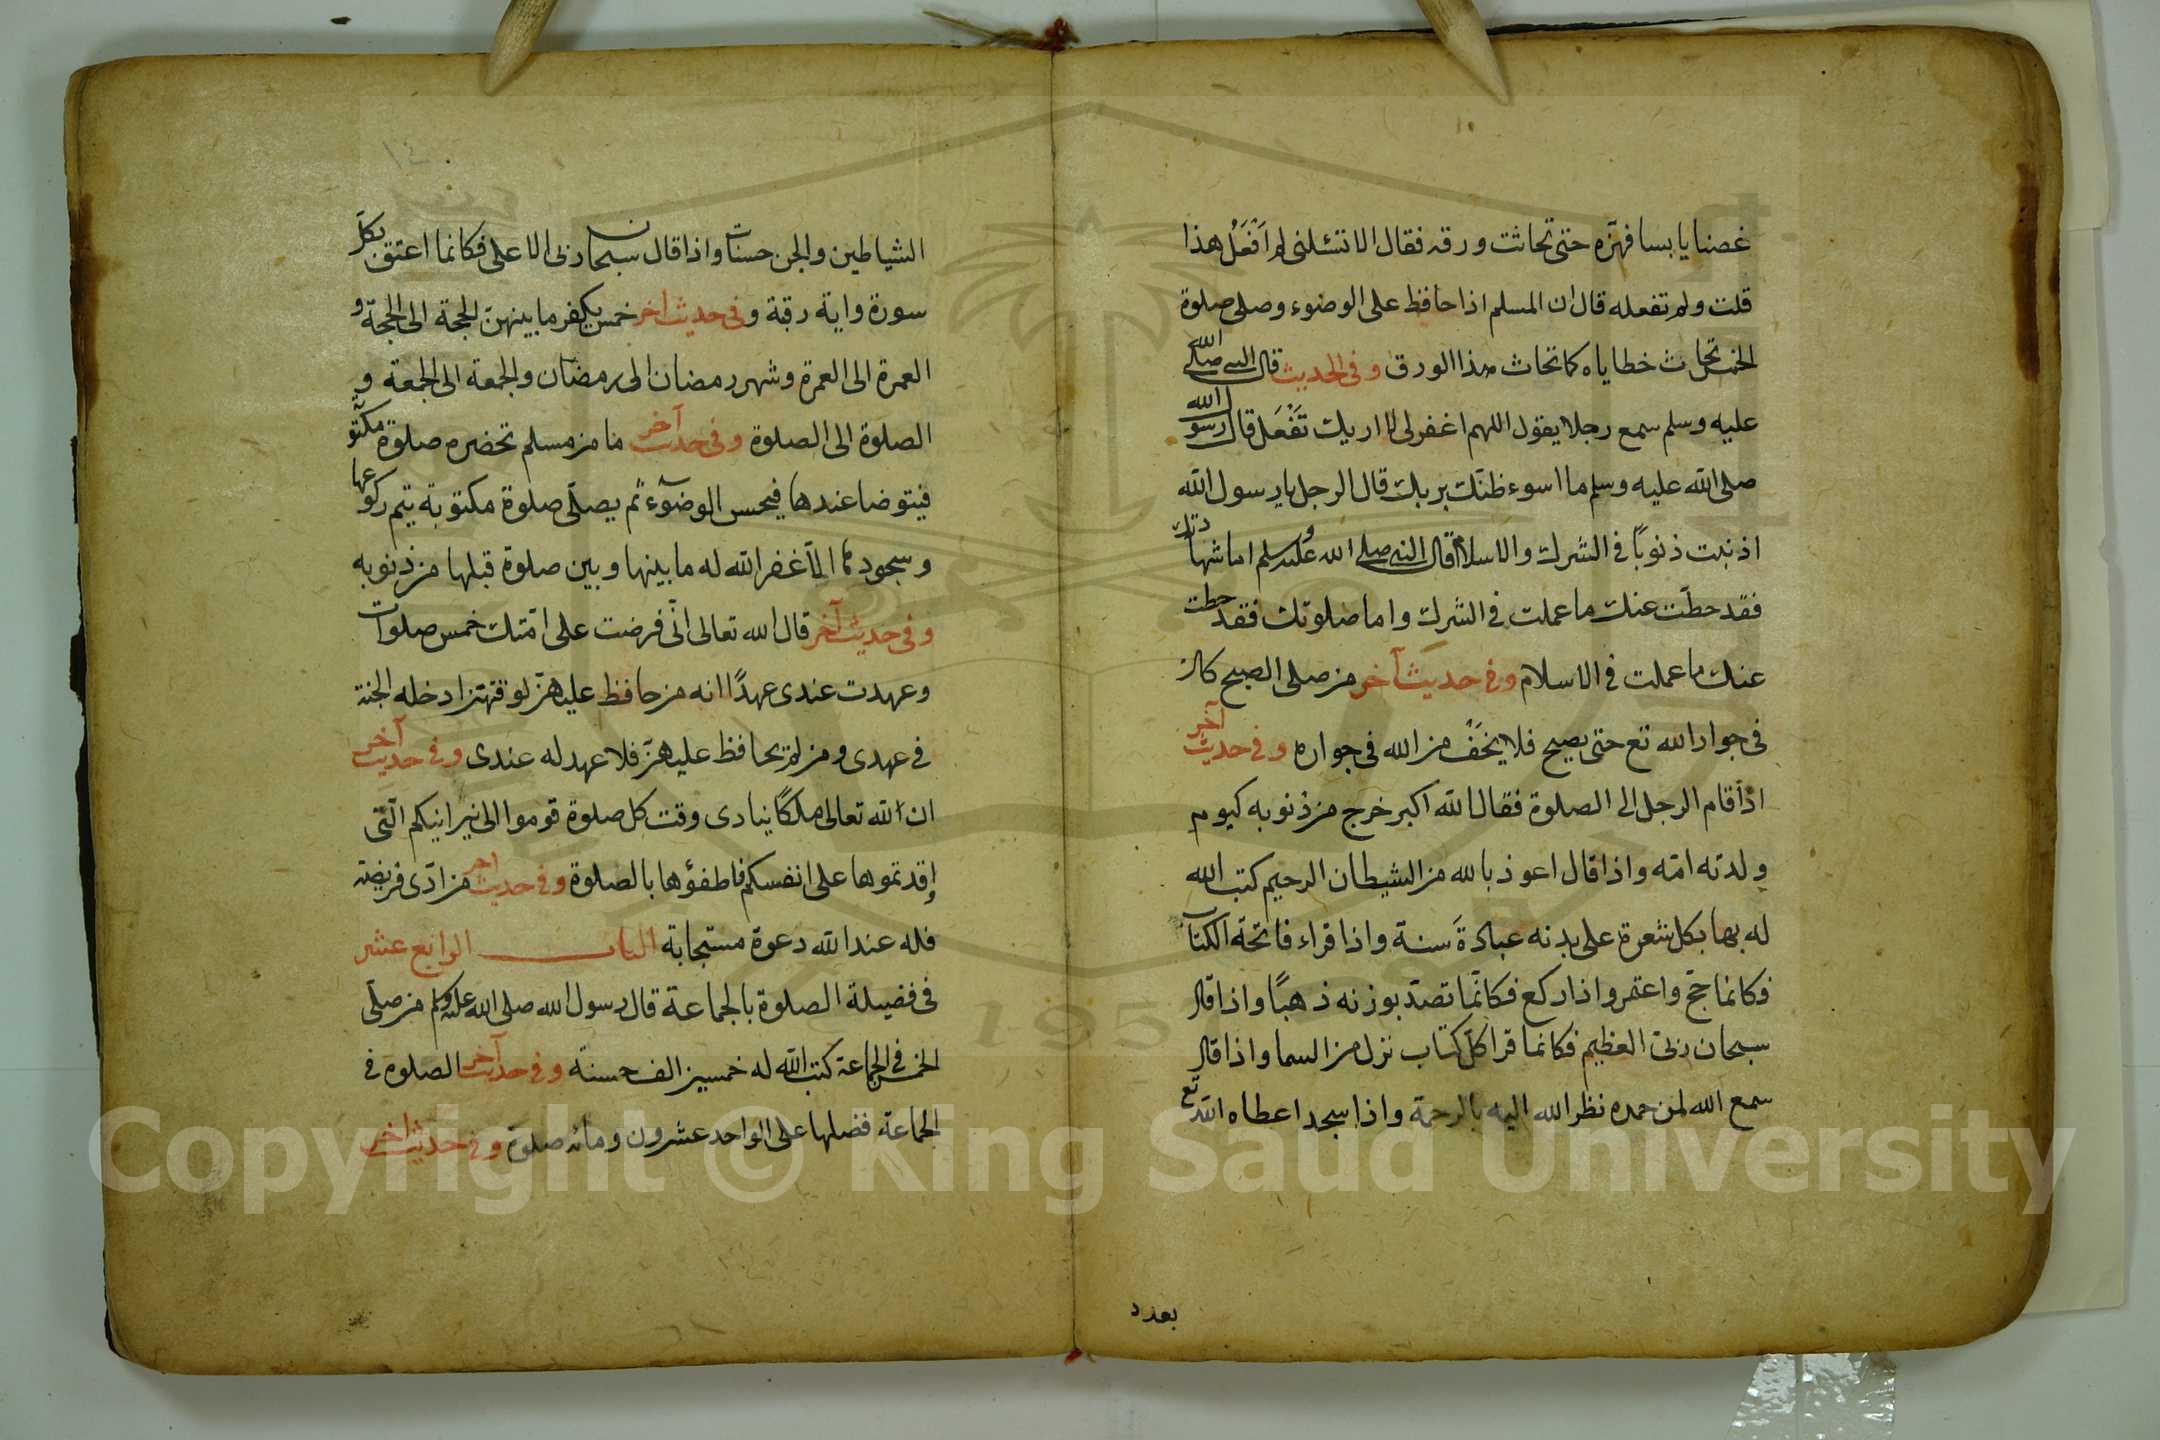 غصنا يابسا فهزه حتى تحاتت ورقه فقال الا تسئلنى لم اَفْعَلُ هذا
قلت ولم تفعله قال ان المسلم اذا حافظ على الوضوء وصلى صلوة
الخمس تحات خطاياه كما تحاث هذا الورق وفى الحديث قال النبى صلى الله
عليه وسلم سمع رجلا يقول اللهم اغفرلى لا اريك تَفْعَل قال رسول الله
صلى الله عليه وسلم ما اسوء ظنك بربك قال الرجل يا رسول الله
اذنبت ذنوبًا فى الشرك والاسلام قال النبى صلى الله عليه وسلم اما شهادتك
فقد حطّت عنك ما عملت فى الشرك واما صلوتك فقد حطت
عنك ما عملت فى الاسلام وفى حديث آخر من صلى الصبح كان
فى جوار الله تع حتى يصبح فلا يخَفْ من الله فى جواره وفى حديث آخر
اذا قام الرجل الى الصلوة فقال الله اكبر خرج من ذنوبه كيوم
ولدته امّه واذا قال اعوذ بالله من الشيطان الرجيم كتب الله
له بها بكل شعرة على بدنه عبادةَ سنة واذا قراء فاتحة الكتاب
فكانما حَجّ واعتمر واذا ركع فكانّما تصدّ بوزنه ذهبًا واذا قال
سبحان ربى العظيم فكانما قرا كلّ كتاب نزل من السما واذا قال
سمع الله لمن حمده نظر الله اليه بالرحمة واذا سجد اعطاه الله تع
بعدد
١٤
الشياطين والجن حسنات واذا قال سبحان ربى الاعلى فكانما اعتق بكل
سورة واية رقبة وفى حديث آخر خمس يكفر ما بينهنّ الحجة الى الحجة و
العمرة الى العمرة وشهر رمضان الى رمضان والجمعة الى الجمعة و
الصلوة الى الصلوة وفى حديث آخر ما من مسلم تحضره صلوة مكتوبة
فيتوضا عندها فيحسن الوضوء ثم يصلّى صلوة مكتوبة يتم ركوعها
وسجودها الّا غفر الله له ما بينها وبين صلوة قبلها من ذنوبه
وفى حديث آخر قال الله تعالى انّى فرضت على امّتك خمس صلوات
وعهدت عندى عهدًا انه من حافظ عليهنّ لوقتهنّ ادخله الجنة
فى عهدى ومن لم يحافظ عليهنّ فلا عهد له عندى وفى حديث آخر
ان لله تعالى ملكًا ينادى وقت كل صلوة قوموا الى نيرانيكم الّتى
اوقدتموها على انفسكم فاطفؤها بالصلوة وفى حديث آخر من ادّى فريضة
فله عند الله دعوة مستجابة الباب الرابع عشر
فى فضيلة الصلوة بالجماعة قال رسول الله صلى الله عليه وسلم من صلّى
الخمس فى الجماعة كتب الله له خمسين الف حسنة وفى حديث آخر الصلوة فى
الجماعة فضلها على الواحد عشرون ومائه صلوة وفى حديث اخر
Copyright © King Saud University
1957